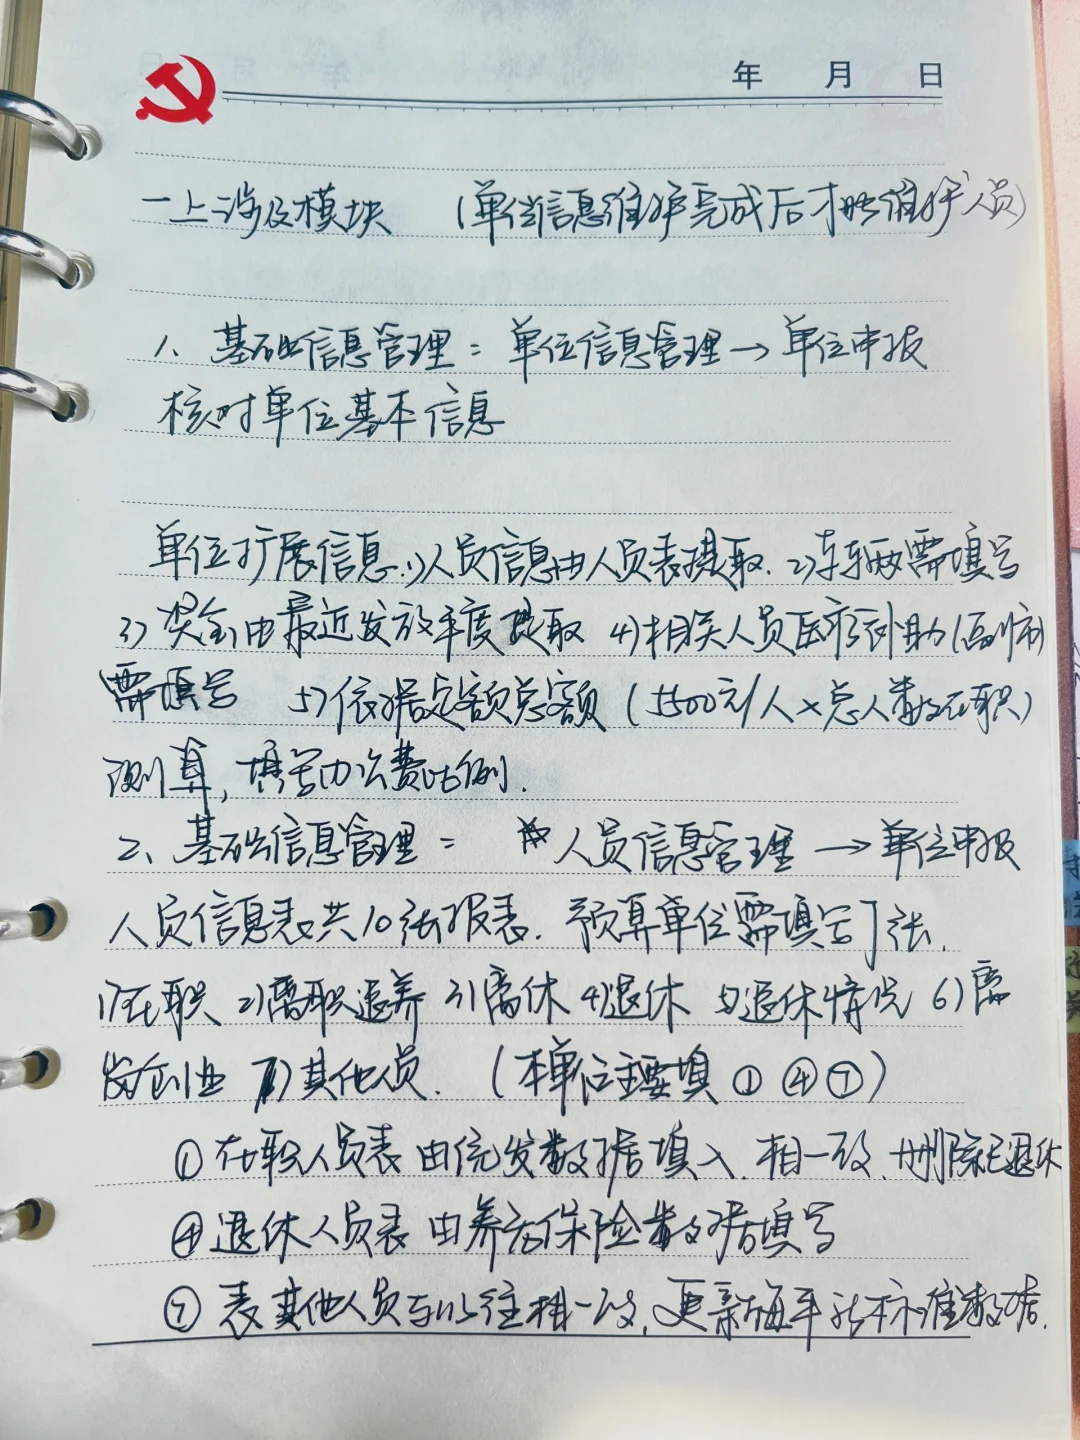 年 月 日
一上涉及模块 (单位信息维护完成后才能维护人员)
1、基础信息管理：单位信息管理→单位申报
核对单位基本信息
单位扩展信息.1)人员信息由人员表提取.2)车辆需填写
3)奖金由最近发放年度提取 4)相关人员医疗补助(副市)
需填写 5)依据定额总额(5500元/人×总人数在职)
测算,填写办公费比例.
2、基础信息管理： 人员信息管理→单位申报
人员信息表共10张报表.预算单位需填写7张.
1)在职 2)离职退养 3)离休 4)退休 5)退休情况 6)离
岗创业 7)其他人员.(本单位主要填①④⑦)
①在职人员表 由统发数据填入.相一致.删除已退休
④退休人员表 由养老保险数据填写
⑦表其他人员与以往相一致,更新每年的标准数据.